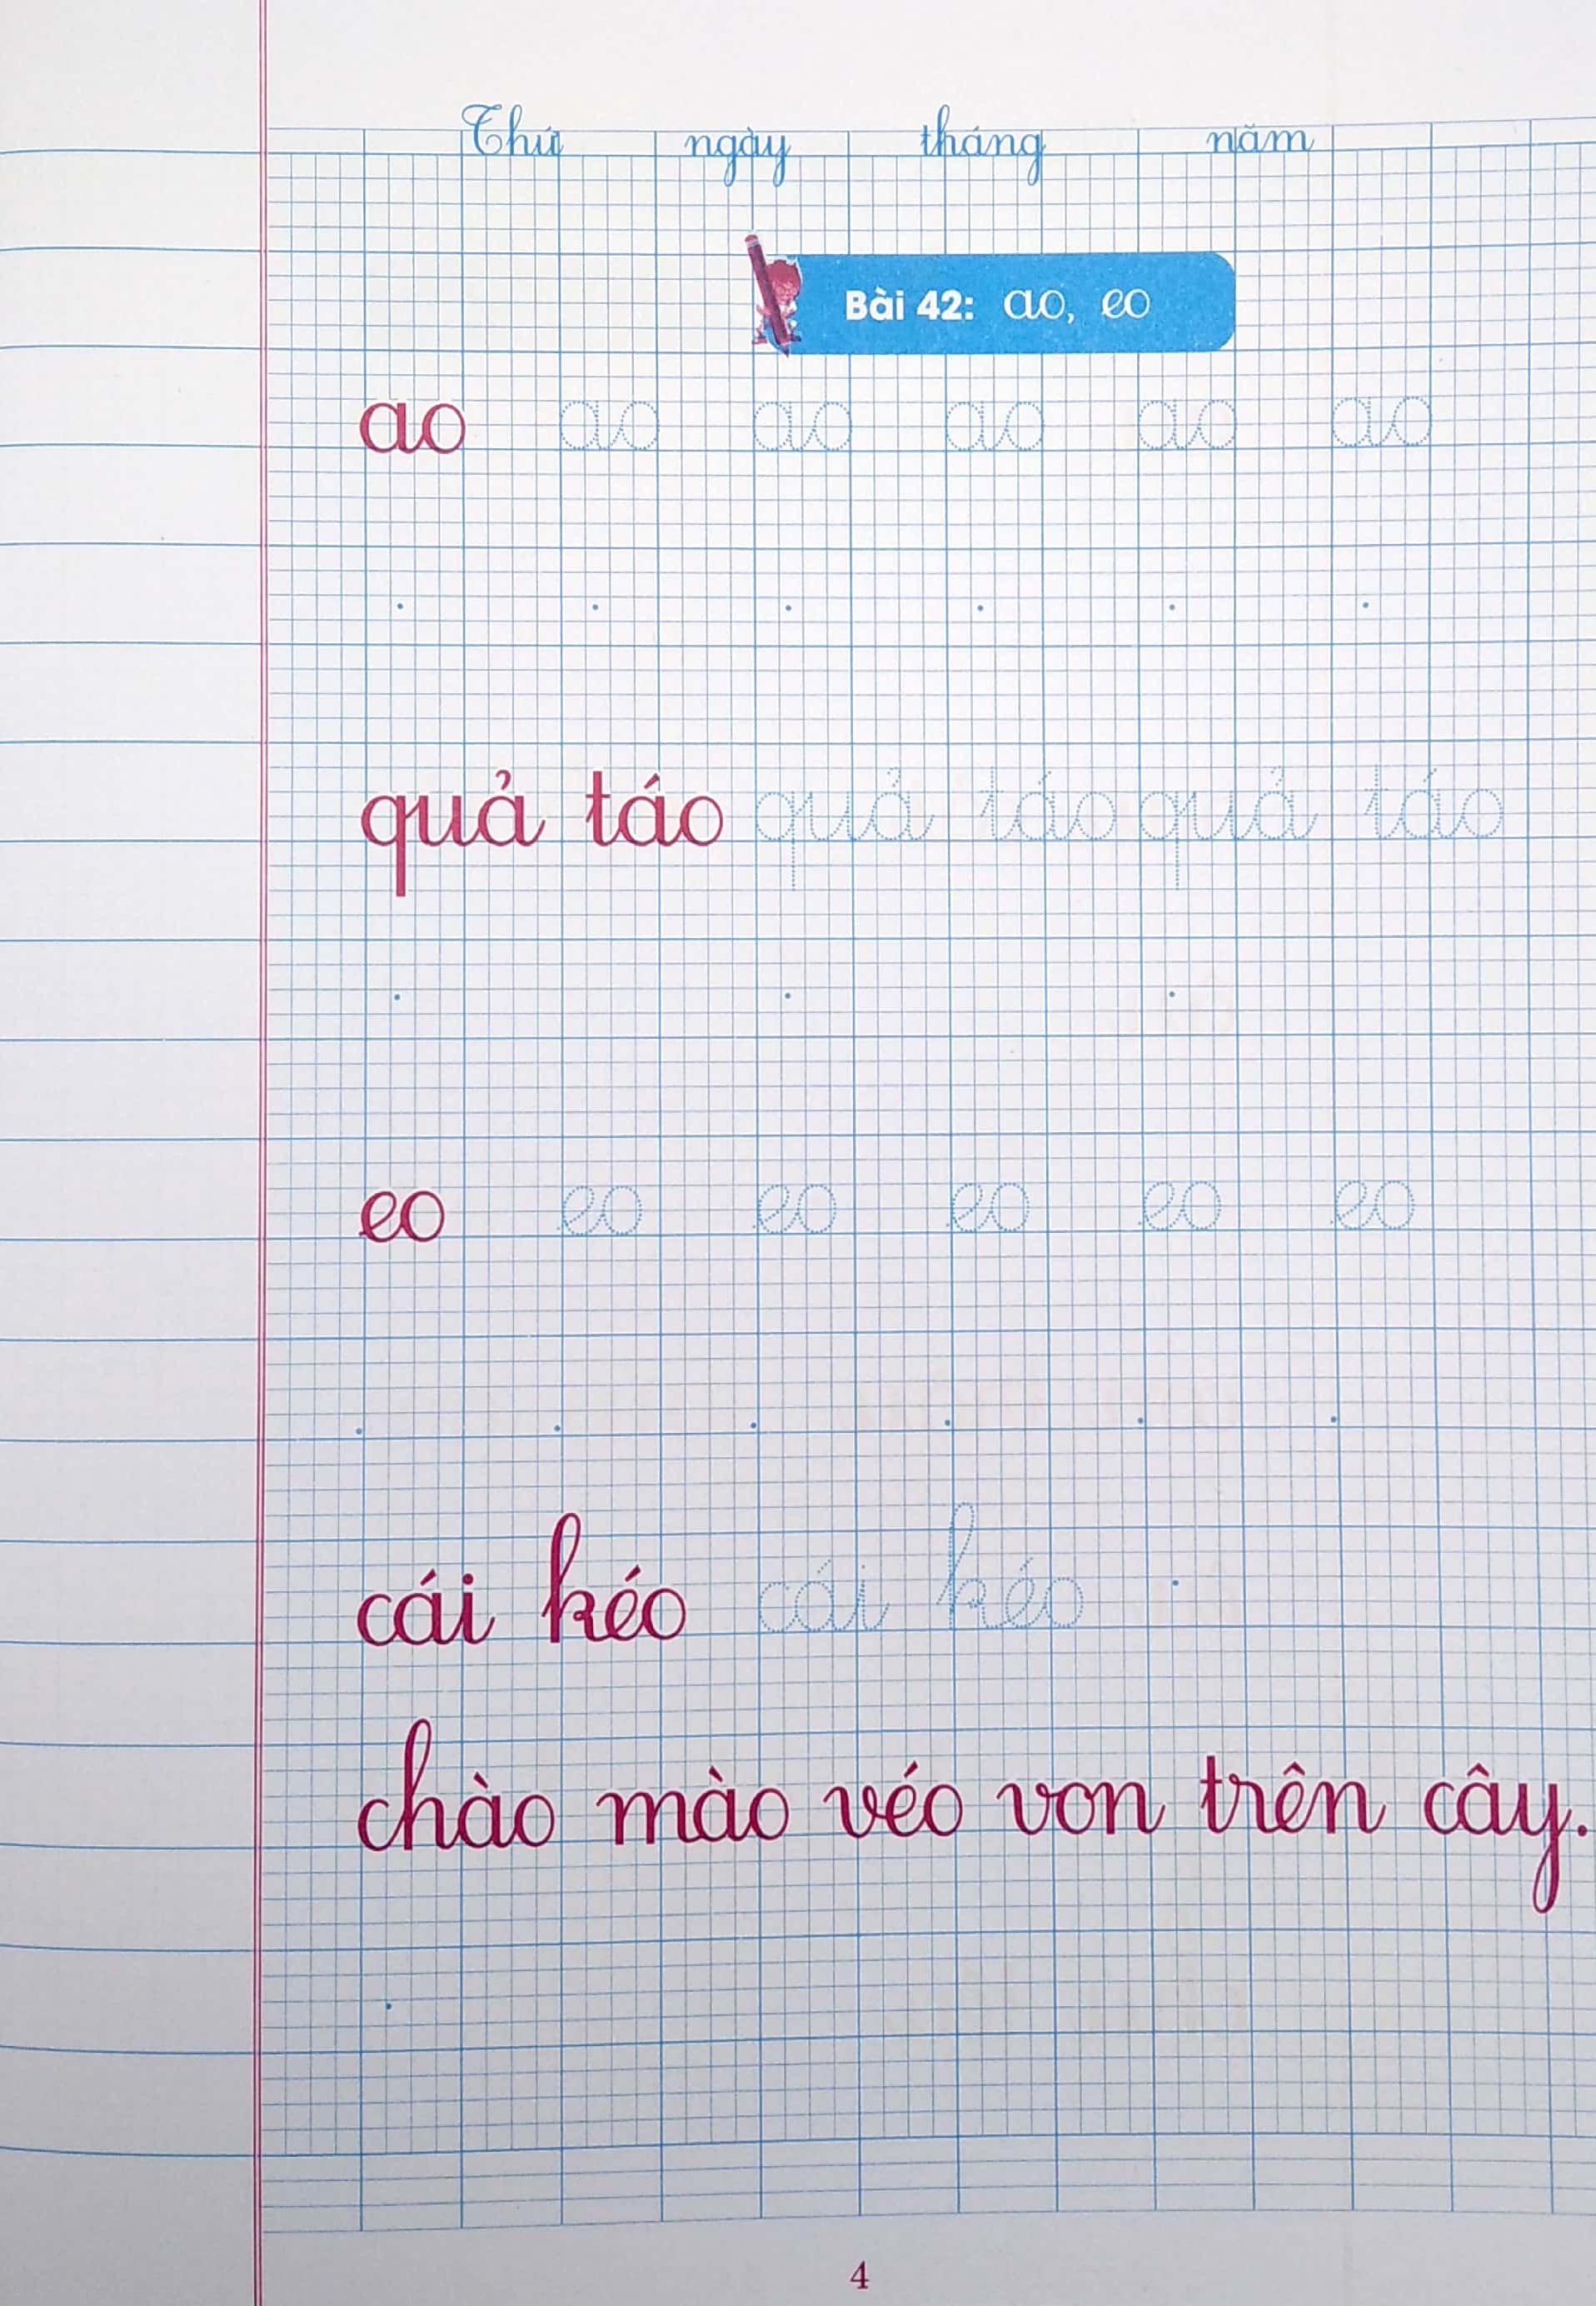 Thứ ngày tháng năm
Bài 42: ao, eo
ao ao ao ao ao ao
quả táo quả táo quả táo
eo eo eo eo eo eo
cái kéo cái kéo
chào mào véo von trên cây.
4